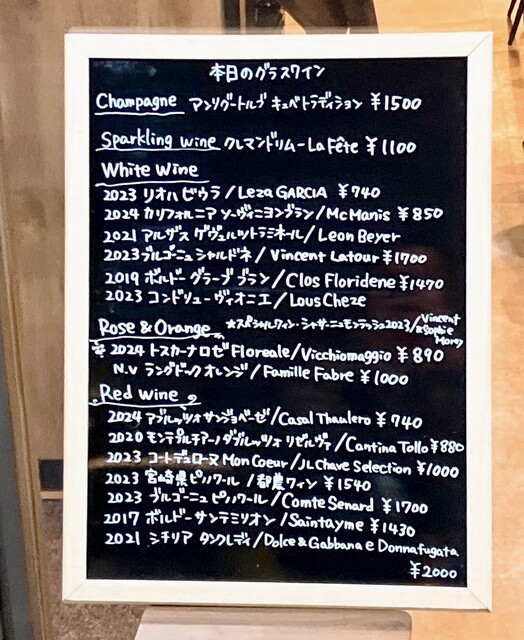 本日のグラスワイン
Champagne アンリグートルブ キュベトラディション ¥1500
Sparkling wine クレマンドリムー La Fête ¥1100
White Wine
2023 リオハ ビウラ / Leza GARCIA ¥740
2024 カリフォルニア ソーヴィニヨンブラン / McManis ¥850
2021 アルザス ゲヴュルツトラミネール / Leon Beyer
2023 ブルゴーニュ シャルドネ / Vincent Latour ¥1700
2019 ボルドー グラーブ ブラン / Clos Floridene ¥1470
2023 コンドリュー・ヴィオニエ / Lous Cheze
Rose & Orange ★スペシャルワイン・シャサーニュモンラッシュ2023 / Vincent & Sophie Morey
2024 トスカーナ ロゼ Floreale / Vicchiomaggio ¥890
N.V ラングドック オレンジ / Famille Fabre ¥1000
Red wine
2024 アブルッツォ サンジョベーゼ / Casal Thaulero ¥740
2020 モンテプルチアーノ ダブルッツォ リゼルヴァ / Cantina Tollo ¥880
2023 コートデュローヌ Mon Coeur / JL Chave Selection ¥1000
2023 宮崎県ピノノワール / 都農ワイン ¥1540
2023 ブルゴーニュ ピノノワール / Comte Senard ¥1700
2017 ボルドーサンテミリオン / Saintayme ¥1430
2021 シチリア タンクレディ / Dolce & Gabbana e Donnafugata
¥2000